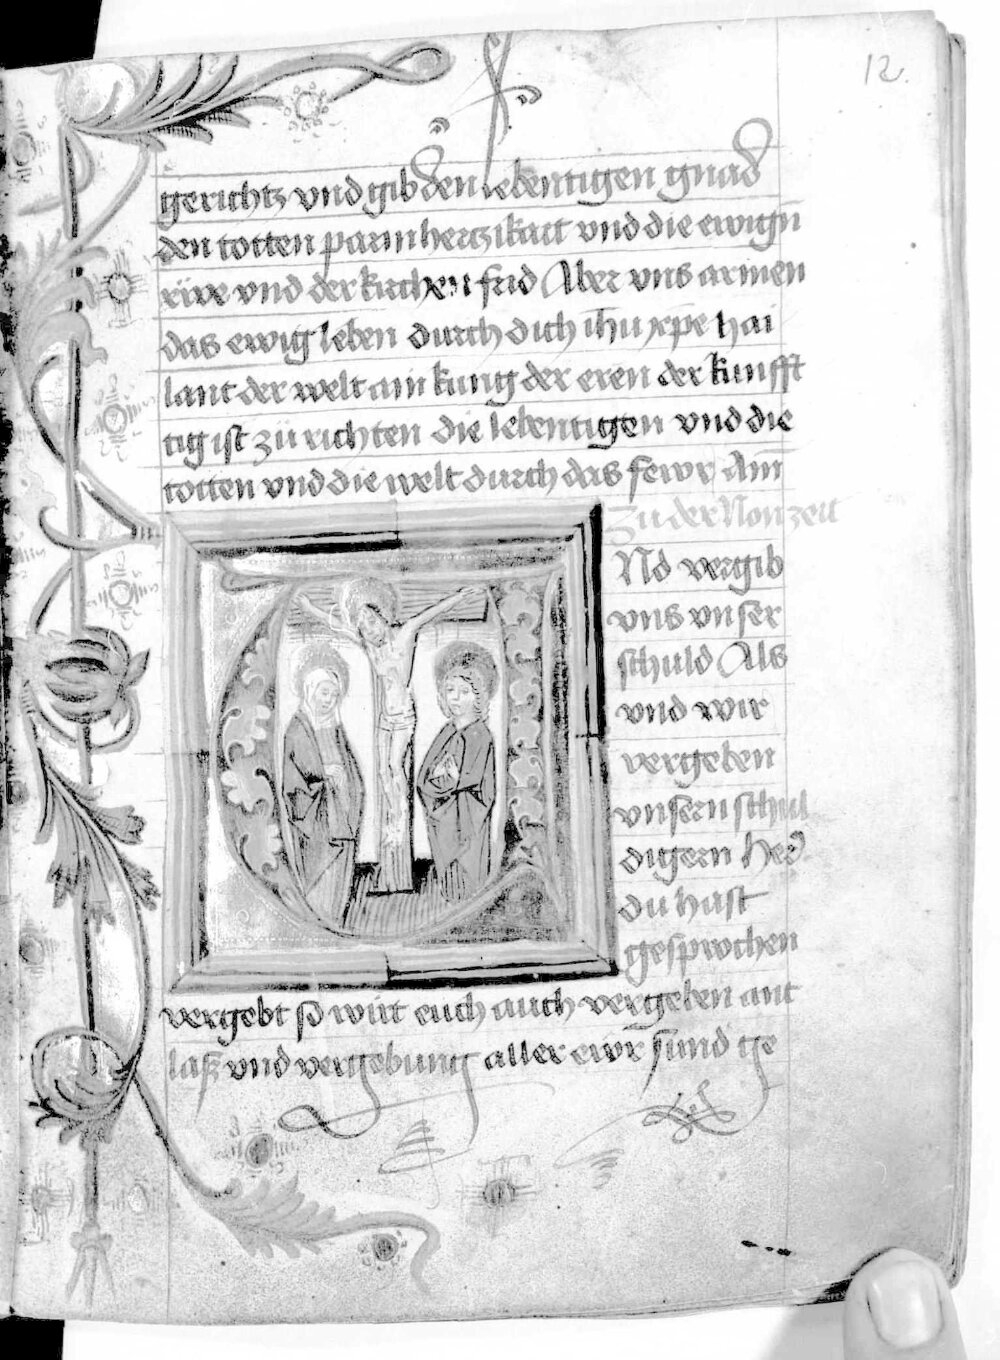 12.
gerichtz vnd gib den lebentigen gnad
den totten parmhertzikait vnd die ewign̄
rwe vnd der kirchen frid Aber vns armen
das ewig leben durch dich ih̄u xp̄e hai
lant der welt ain kung der eren der kunfft
tig ist zü richten die lebentigen vnd die
totten vnd die welt durch das fewr Am̄
Zu der Non zeit
Nd vergib
vns vnser
schuld Als
vnd wir
vergeben
vnsern schul
digern Her
du hast
gesprochen
vergebt so wirt euch auch vergeben ant
lasz vnd vergebung aller ewr sund ge